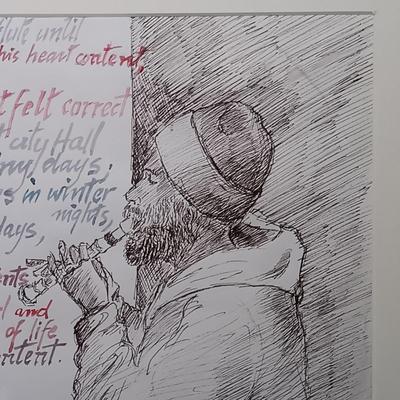 flute until
his heart content,
felt correct
city Hall
my days,
in winter
nights,
days,
and
of life